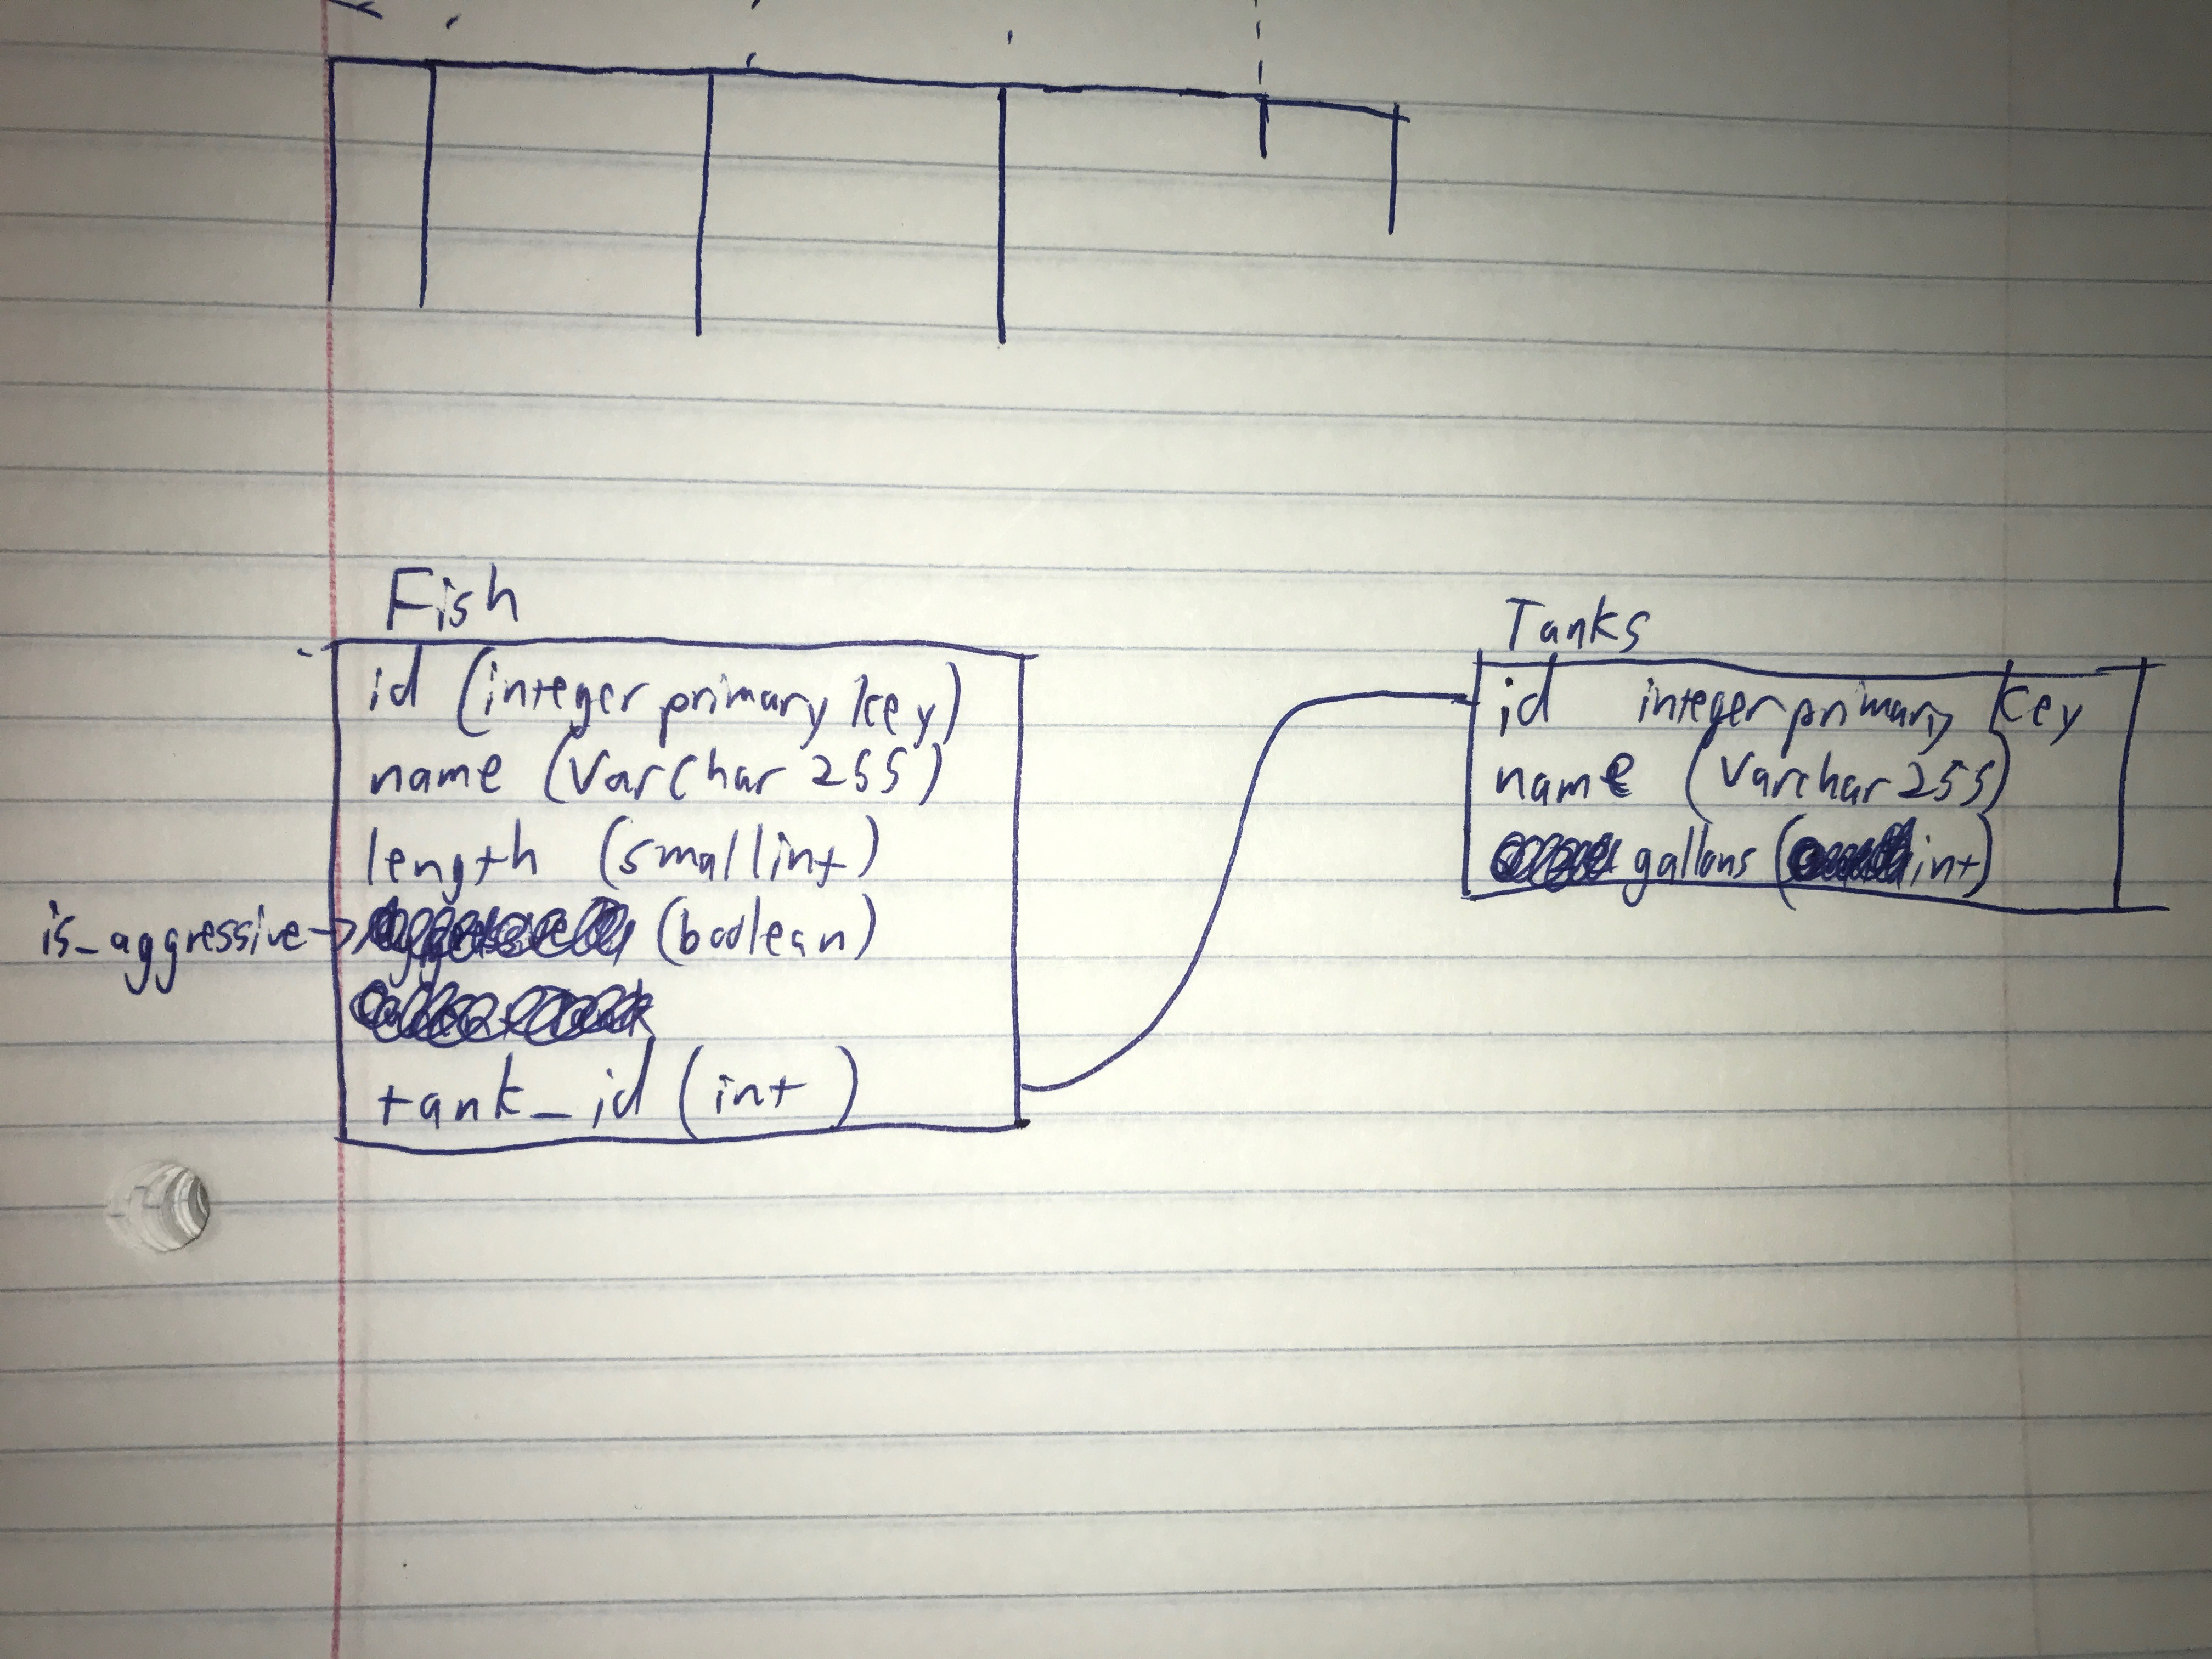 Fish
id (integer primary key)
name (Varchar 255)
length (smallint)
is_aggressive → (boolean)
tank_id (int)
Tanks
id integer primary key
name (Varchar 255)
gallons (int)